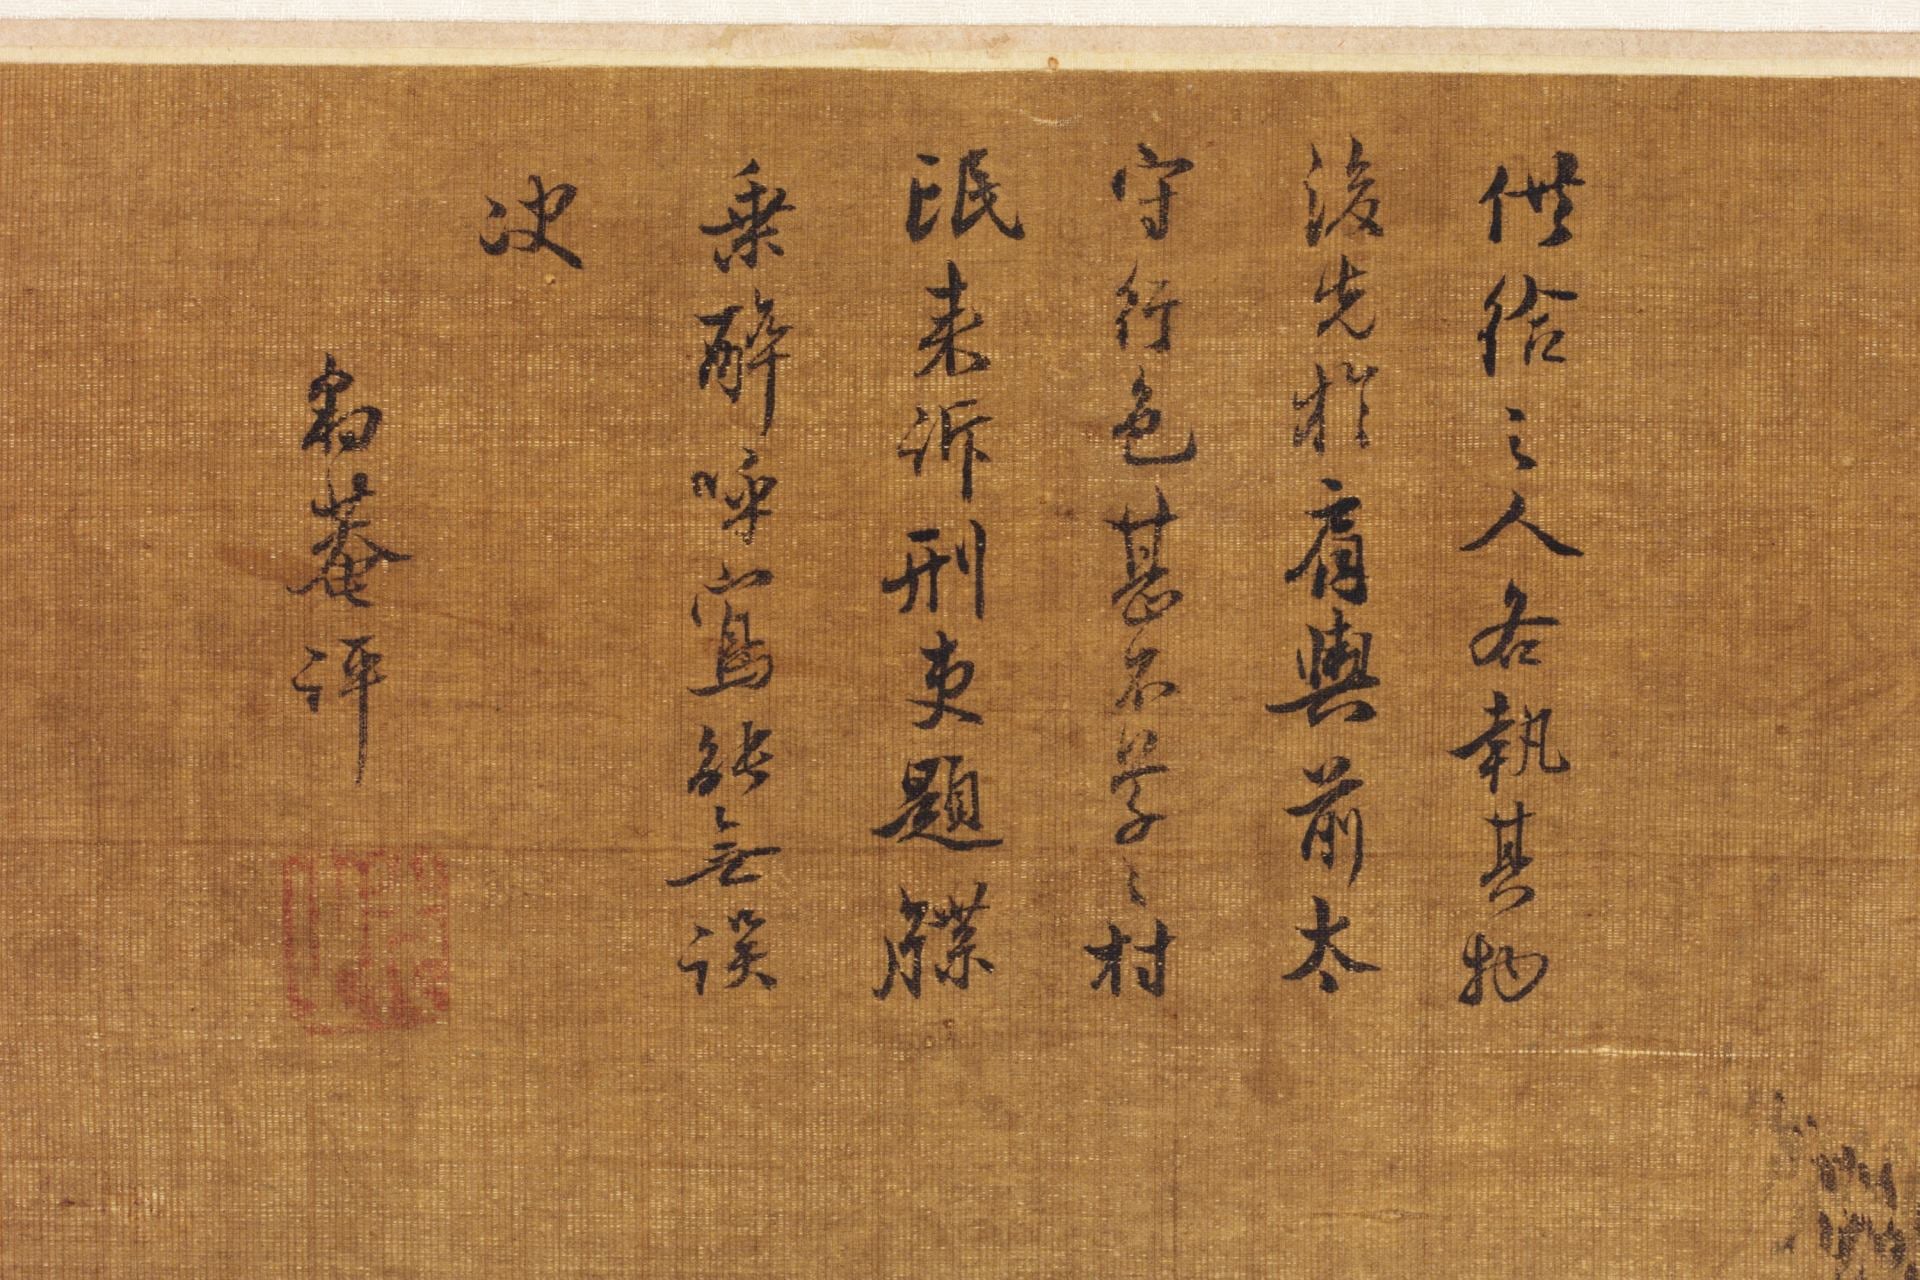 供給之人各執其物
後先於肩輿前太
守行色甚不草々村
氓来訴刑吏題牒
乗醉呼寫能無誤
决
豹菴評